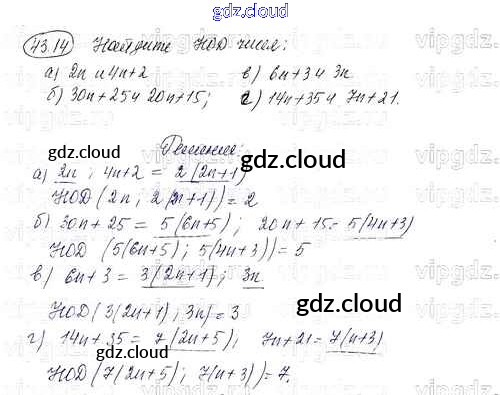 gdz.cloud
43.14 Найдите НОД чисел:
gdz.cloud
а) 2n и 4n+2 в) 6n+3 и 3n
б) 30n+25 и 20n+15; г) 14n+35 и 7n+21.
Решение:
gdz.cloud gdz.cloud
а) 2n; 4n+2 = 2(2n+1)
НОД(2n; 2(2n+1)) = 2
б) 30n+25 = 5(6n+5); 20n+15 = 5(4n+3)
НОД(5(6n+5); 5(4n+3)) = 5
в) 6n+3 = 3(2n+1); 3n
НОД(3(2n+1); 3n) = 3
gdz.cloud
г) 14n+35 = 7(2n+5); 7n+21 = 7(n+3)
gdz.cloud
НОД(7(2n+5); 7(n+3)) = 7.